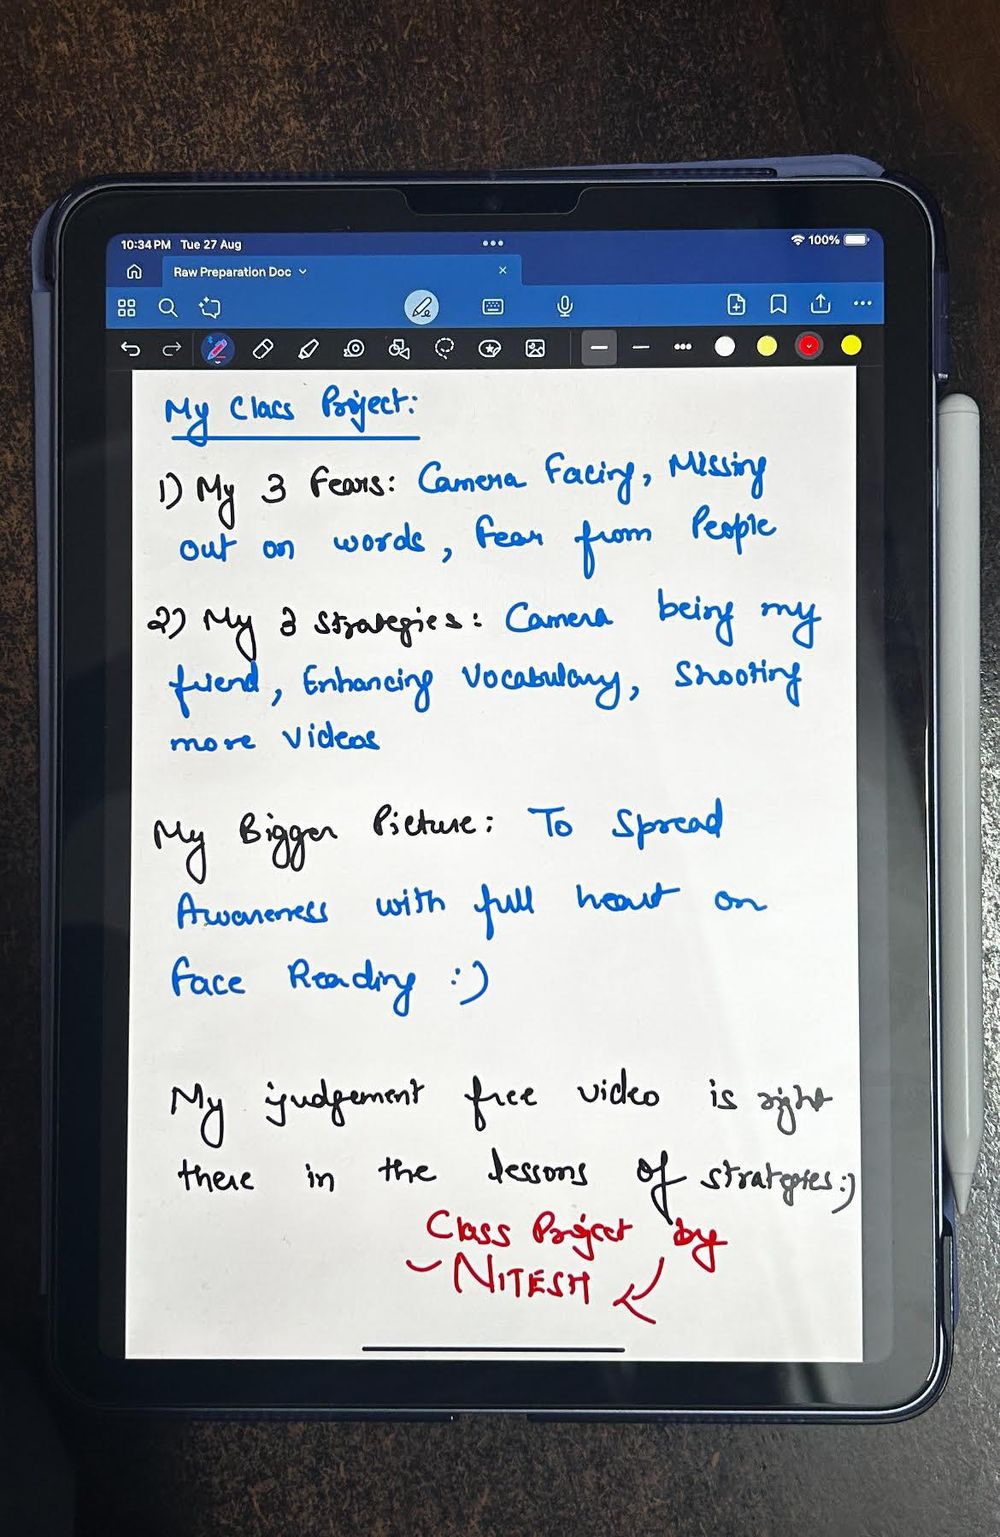 10:34 PM Tue 27 Aug
100%
Raw Preparation Doc
My Class Project:
1) My 3 Fears: Camera Facing, Missing
out on words, Fear from People
2) My 3 Strategies: Camera being my
friend, Enhancing Vocabulary, Shooting
more Videos
My Bigger Picture: To Spread
Awareness with full heart on
Face Reading :)
My judgement free video is right
there in the lessons of strategies:)
Class Project by
- NITESH